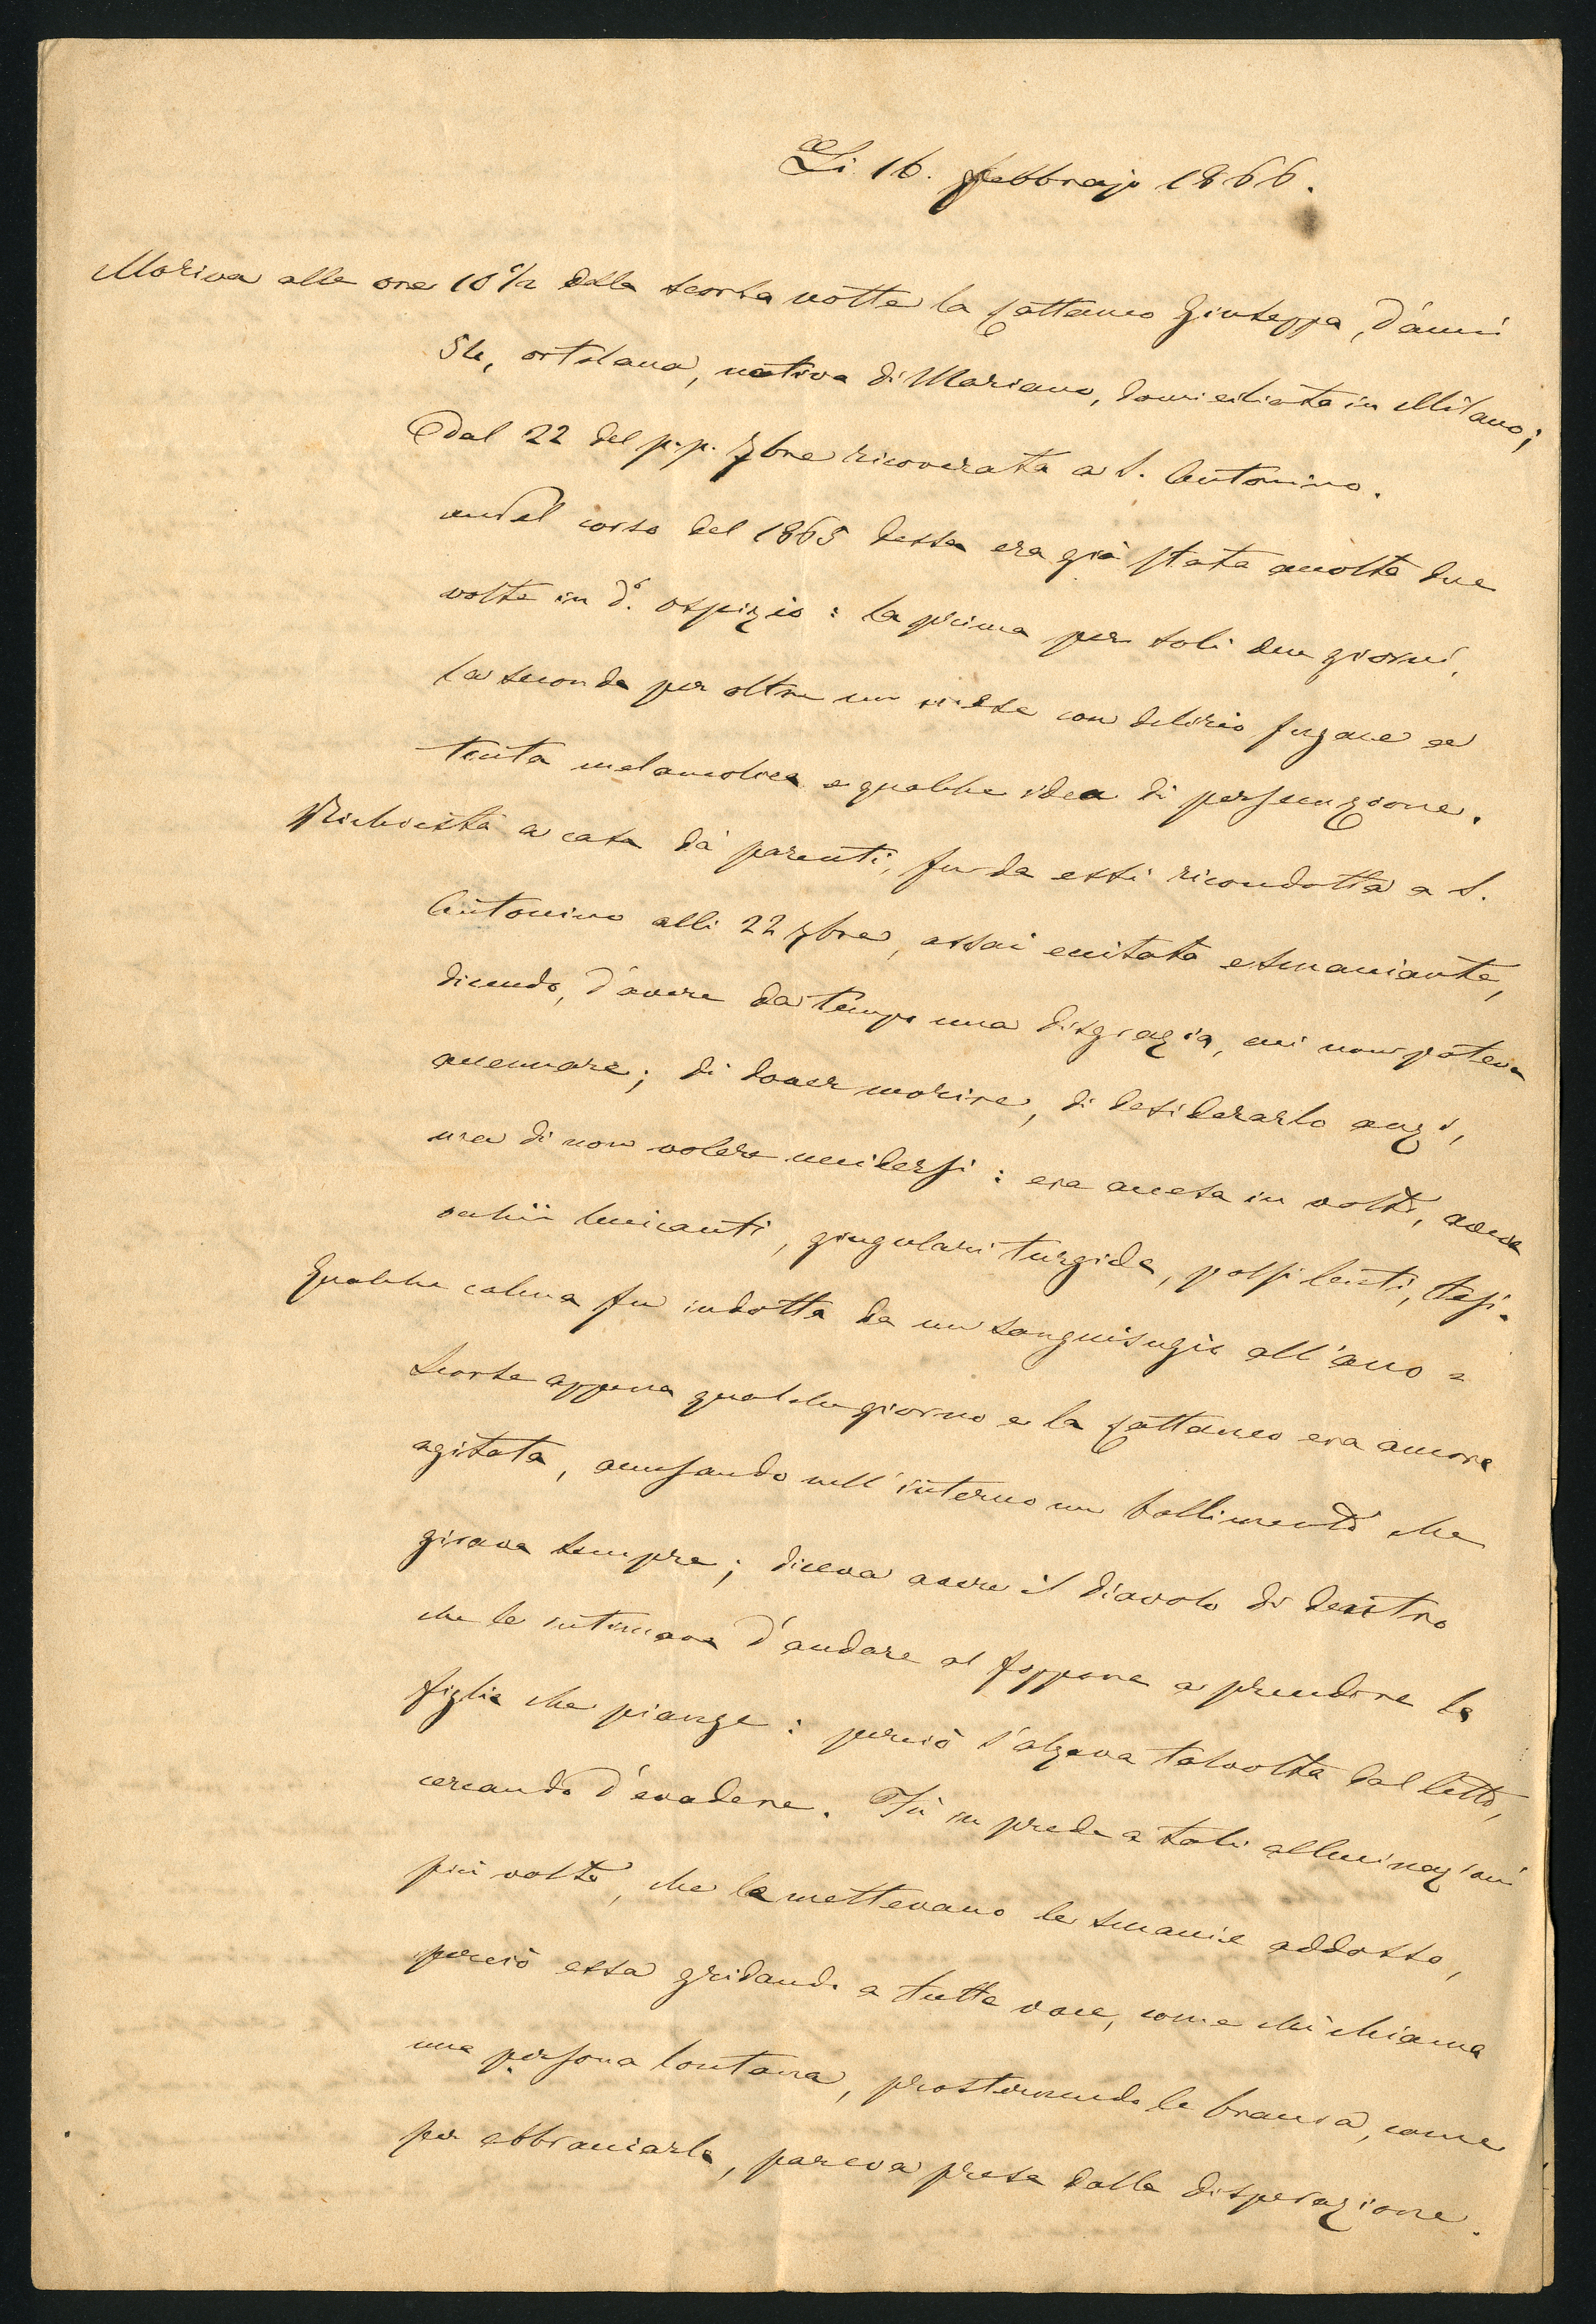 Li 16. Febbrajo 1866.
Moriva alle ore 10 1/2 della scorsa notte la Cattaneo Giuseppa, d'anni
54, ortolana, nativa di Mariano, domiciliata in Milano;
dal 22 del p.p. 7bre ricoverata a S. Antonino.
Nel corso del 1865 dessa era già stata accolta due
volte in d.o ospizio: la prima per soli due giorni,
la seconda per oltre un mese con delirio fugace a
tinta melanconica e qualche idea di persecuzione.
Richiesta a casa da' parenti, fu da essi ricondotta a S.
Antonino alli 22 7bre, assai eccitata e smaniante,
dicendo, d'avere da tempo una disgrazia, cui non poteva
accennare; di dover morire, di desiderarlo anzi,
ma di non volere uccidersi: era accesa in volto, aveva
occhii luccicanti, giugulari turgide, polsi lenti, tesi.
Qualche calma fu indotta da un sanguisugio all'ano =
scorse appena qualche giorno e la Cattaneo era ancora
agitata, accusando nell'interno un bollimento che
girava sempre; diceva avere il diavolo di dentro
che le intimava d'andare al foppone a prendere la
figlia che piange: perciò s'alzava talvolta dal letto,
cercando d'evadere. Fù in preda a tali allucinazioni
più volte, che le mettevano le smanie addosso,
perciò essa gridando a tutta voce, come chi chiama
una persona lontana, prostendendo le braccia, come
per abbracciarla, pareva presa dalla disperazione.